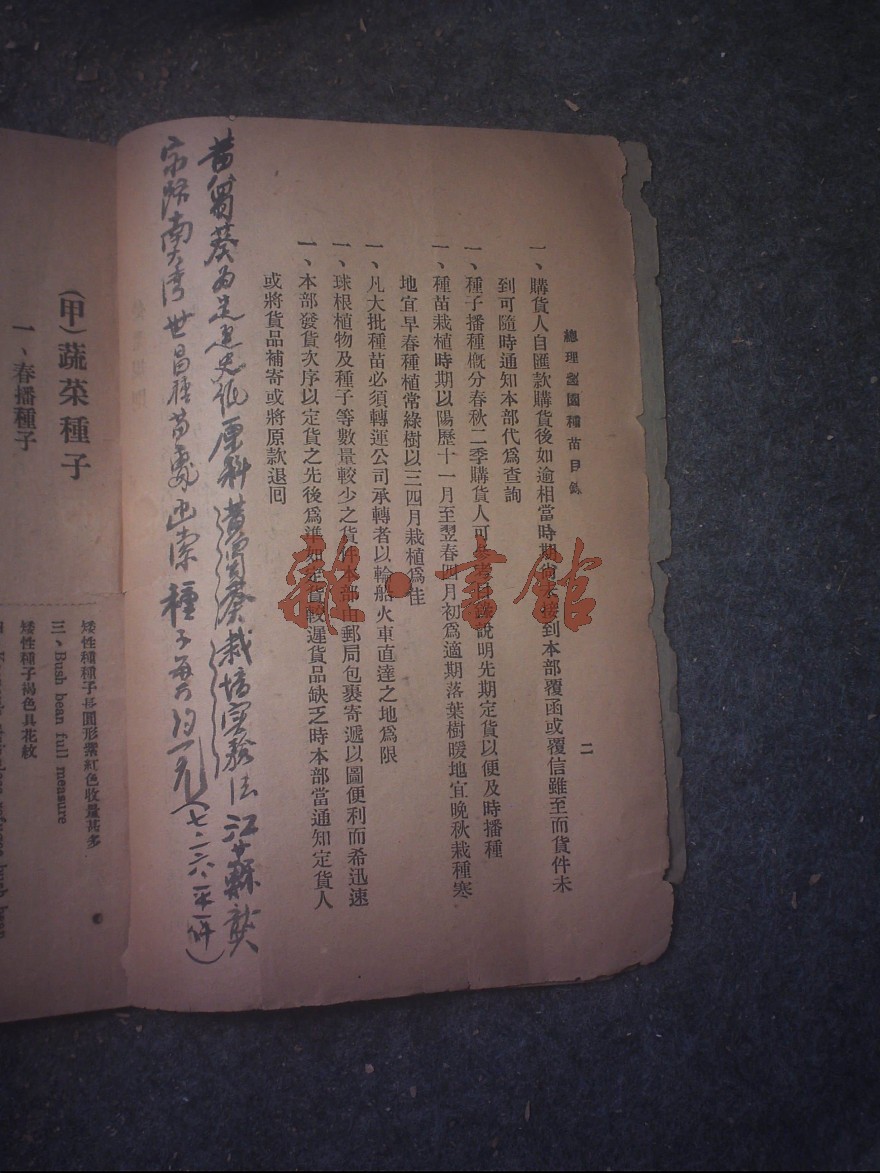 總理陵園種苗目錄
二
一、購貨人自匯款購貨後如逾相當時期尚未接到本部覆函或覆信雖至而貨件未
到可隨時通知本部代爲查詢
一、種子播種槪分春秋二季購貨人可參考目錄說明先期定貨以便及時播種
一、種苗栽植時期以陽歷十一月至翌春四月初爲適期落葉樹暖地宜晚秋栽種寒
地宜早春種植常綠樹以三四月栽植爲佳
一、凡大批種苗必須轉運公司承轉者以輪船火車直達之地爲限
一、球根植物及種子等數量較少之貨件本部由郵局包裹寄遞以圖便利而希迅速
一、本部發貨次序以定貨之先後爲準如定貨較遲貨品缺乏時本部當通知定貨人
或將貨品補寄或將原款退囘
黃蜀葵爲 原料 黃蜀葵栽培實驗法 江蘇
南大灣世昌種苗 函索 種子每 約一元
(甲)蔬菜種子
一、春播種子
矮性種種子長圓形紫紅色收量甚多
三、Bush bean full measure
矮性種子褐色具花紋
雜·書館